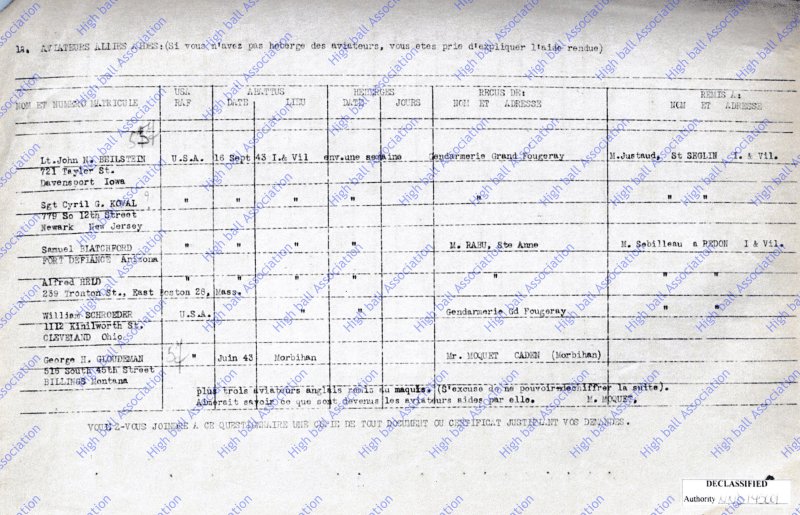 12. AVIATEURS ALLIES AIDES:(Si vous n'avez pas heberge des aviateurs, vous etes prie d'expliquer l'aide rendue)
USA ABATTUS HEBERGES RECUS DE: REMIS A:
NOM ET NUMERO MATRICULE RAF DATE LIEU DATE JOURS NOM ET ADRESSE NOM ET ADRESSE
Lt.John N. BEILSTEIN U.S.A. 16 Sept 43 I.& Vil env.une semaine Gendarmerie Grand Fougeray M.Justaud, St SEGLIN I. & Vil.
721 Tayler St.
Davensport Iowa
Sgt Cyril G. KOVAL " " " " " " "
779 So 12th Street
Newark New Jersey
Samuel BLATCHFORD " " " " M. RABU, Ste Anne M. Sebilleau a REDON I & Vil.
FORT DEFIANCE Arizona
Alfred HELD " " " " " " "
239 Tronton St., East Boston 28, Mass.
William SCHROEDER U.S.A. " " Gendarmerie Gd Fougeray
1112 Kinilworth St.
CLEVELAND Ohio
George H. GLOUDEMAN 57 " Juin 43 Morbihan Mr. MOQUET CADEN (Morbihan)
516 South 45th Street
BILLINGS Montana
plus trois aviateurs anglais remis au maquis. (S'excuse de ne pouvoir dechiffrer la suite).
Aimerait savoir ce que sont devenus les aviateurs aides par elle. M. MOQUET.
VOUS JOINDRE A CE QUESTIONNAIRE UNE COPIE DE TOUT DOCUMENT OU CERTIFICAT JUSTIFIANT VOS DEMANDES.
DECLASSIFIED
Authority
High ball Association